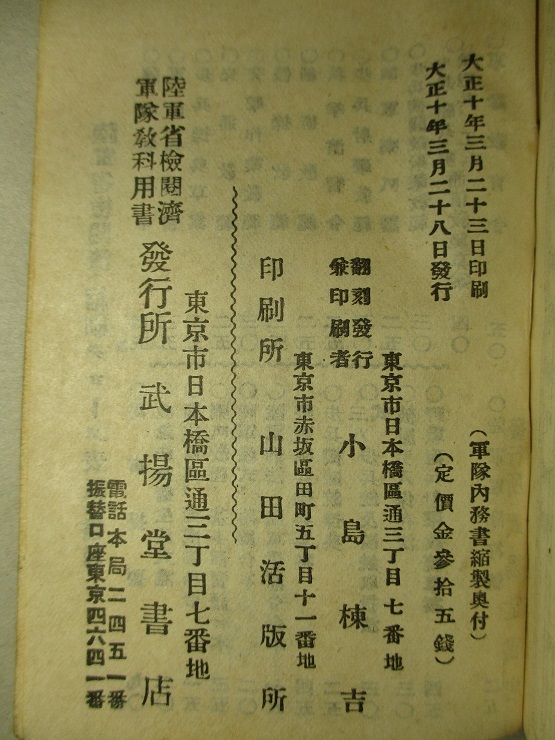 大正十年三月二十三日印刷
(軍隊內務書縮製奧付)
大正十年三月二十八日發行
(定價金參拾五錢)
東京市日本橋區通三丁目七番地
翻刻發行
兼印刷者
小島棟吉
東京市赤坂區田町五丁目十一番地
印刷所 山田活版所
東京市日本橋區通三丁目七番地
陸軍省檢閱濟
軍隊敎科用書
發行所 武揚堂書店
電話本局二四五一番
振替口座東京四六四一番